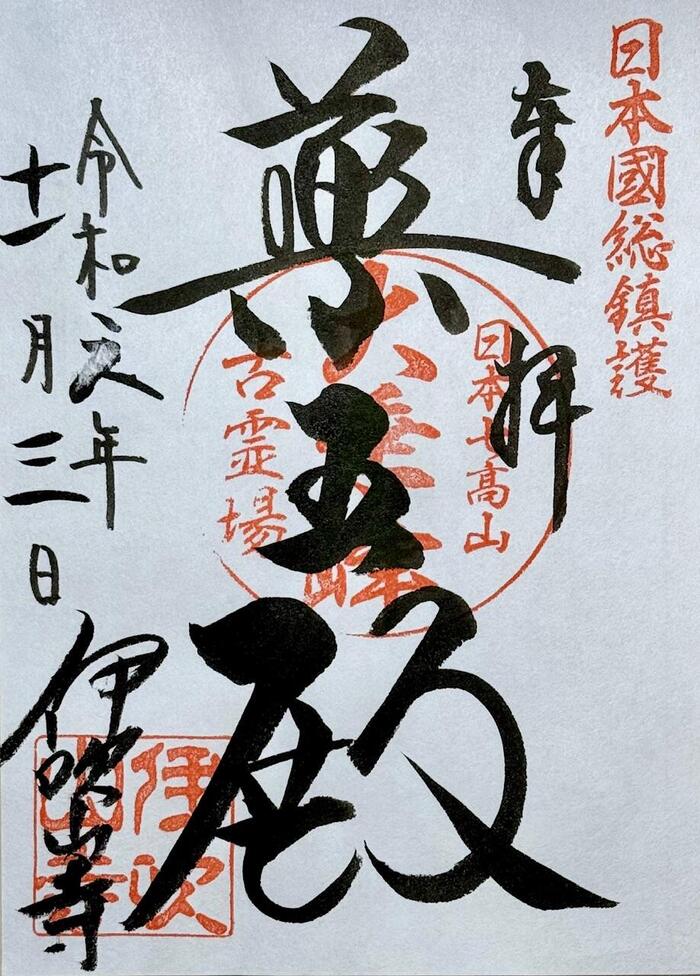 日本國総鎮護
奉拝
日本七高山
薬五殿
古霊場
令和元年
十一月三日
伊吹山寺
伊吹
山寺